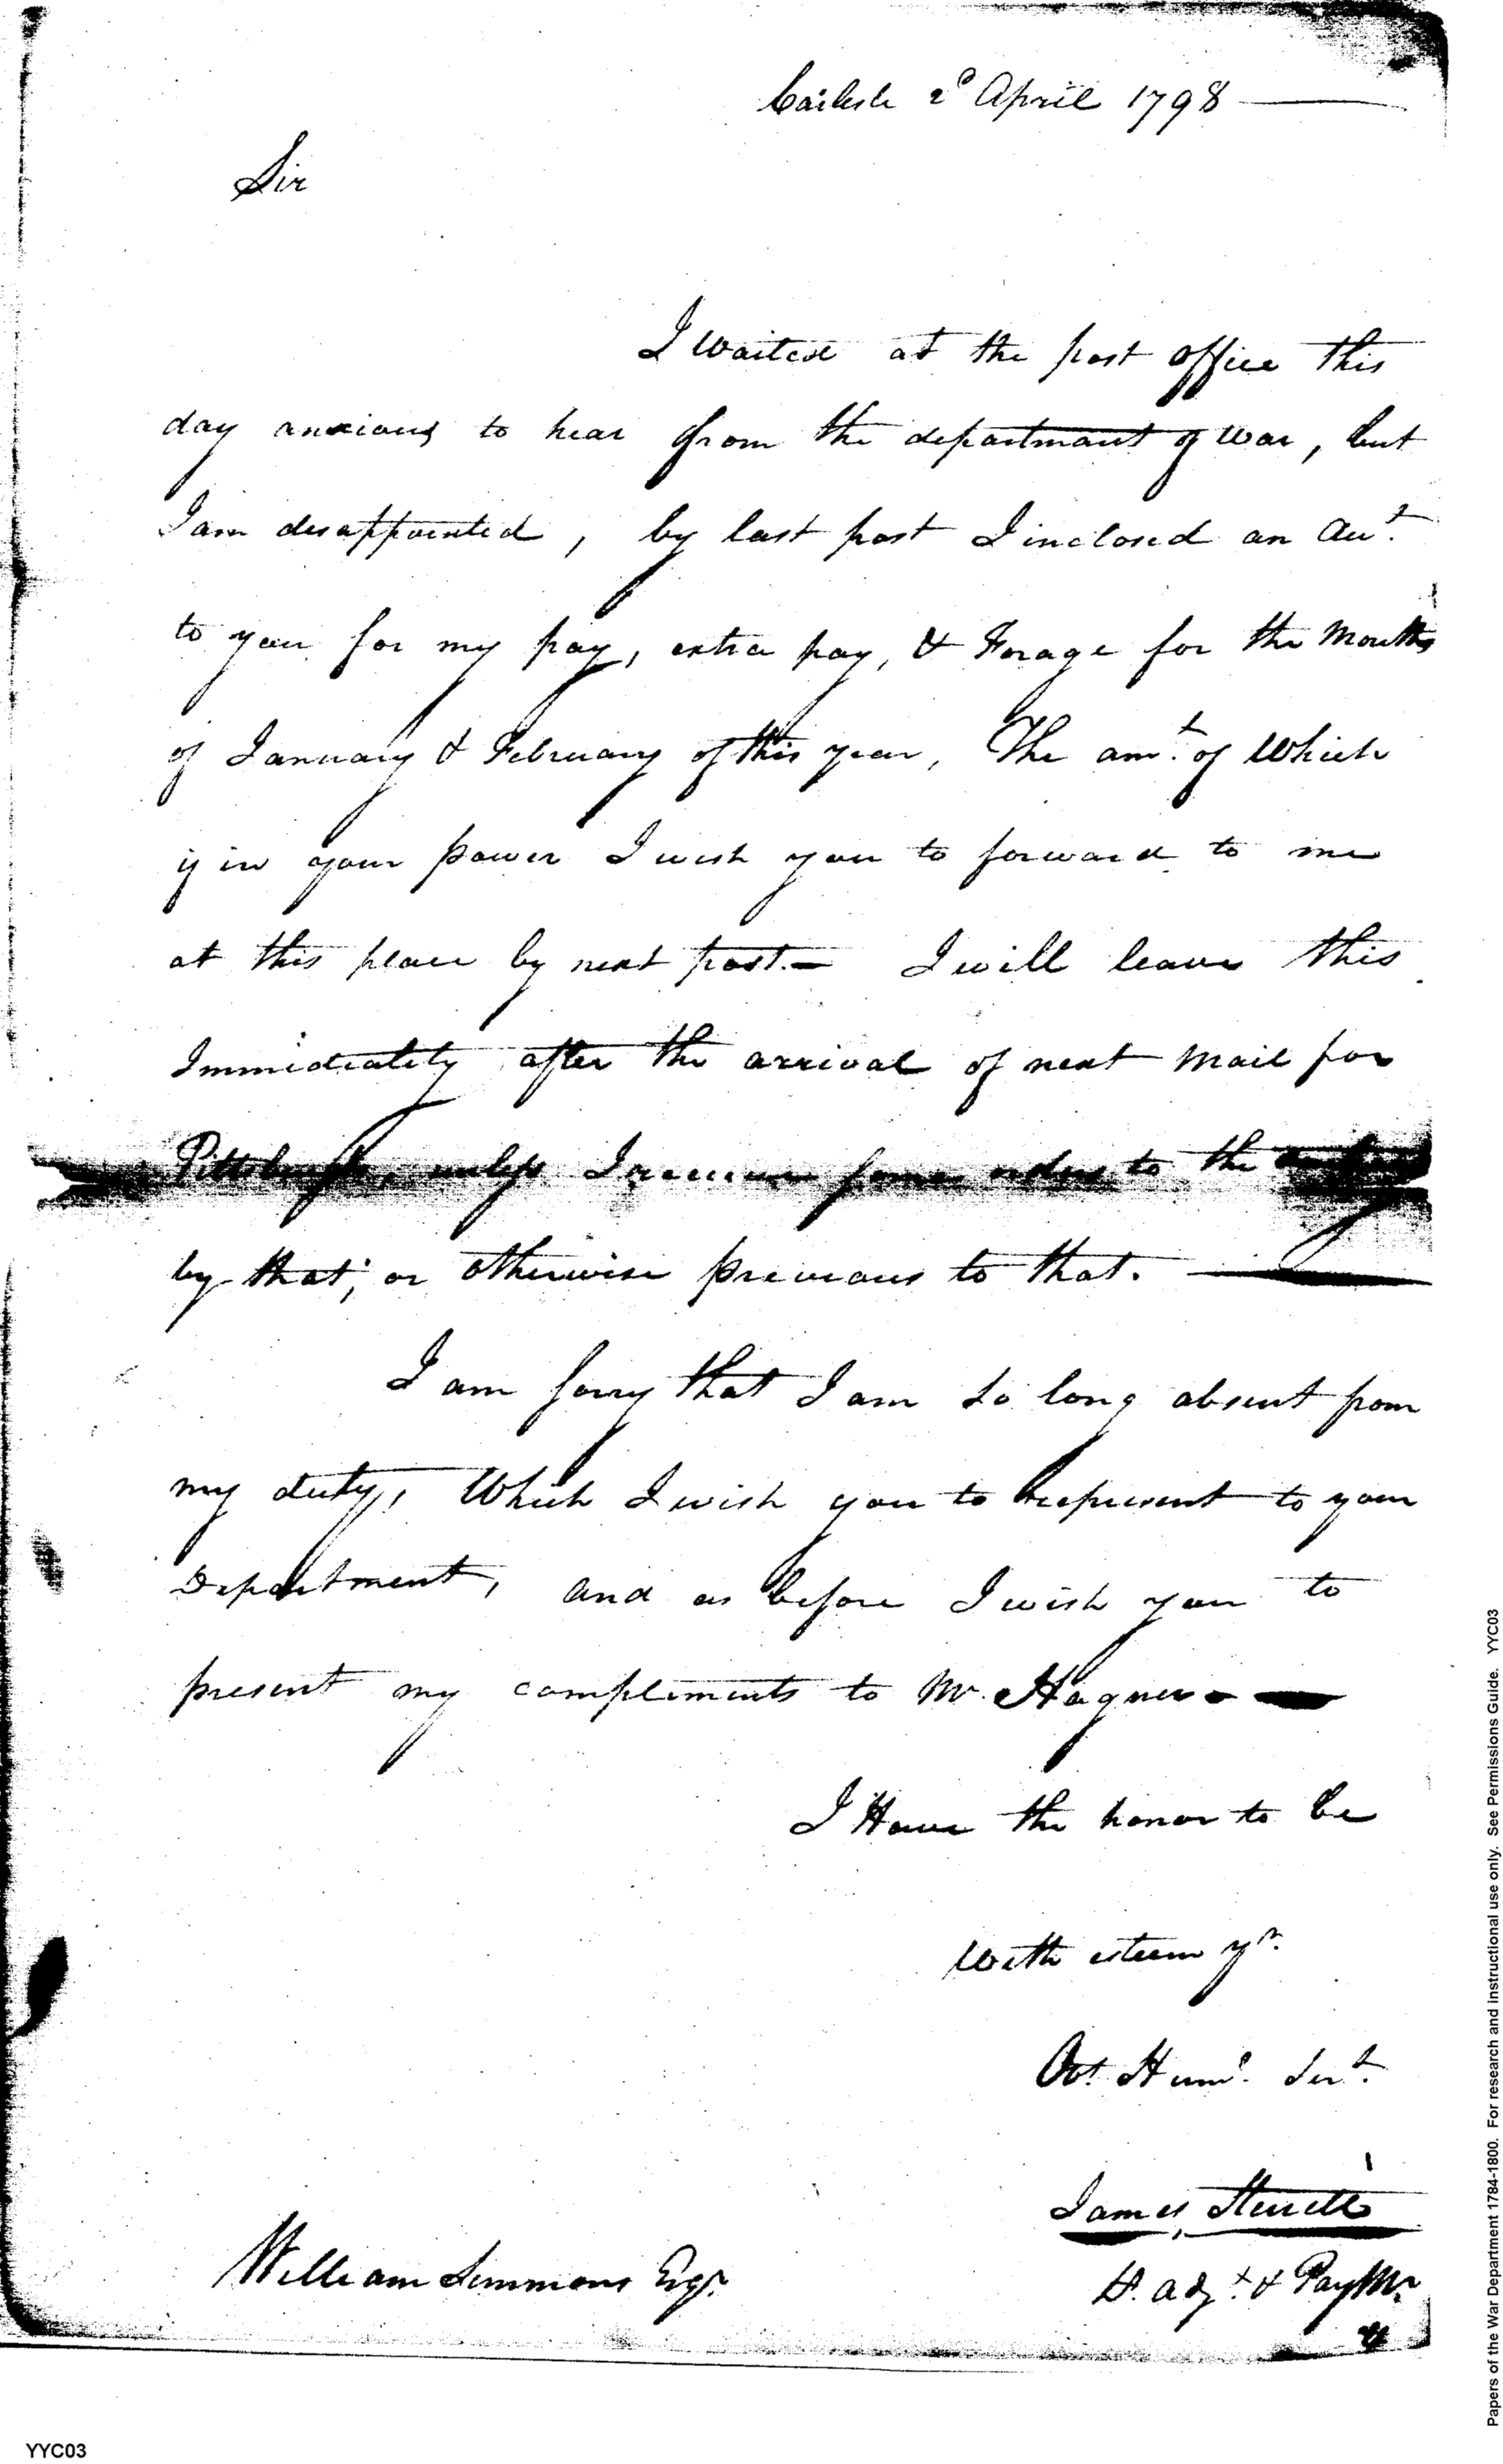 Carlisle 2d April 1798
Sir
I waited at the post office this
day anxious to hear from the departmant of war, but
I am desappointed, by last post I inclosed an Aut.
to you for my pay, extra pay, & Forage for the Months
of January & February of this year, The amt. of Which
if in your power I wish you to forward to me
at this place by next post.— I will leave this
Immidiately after the arrival of next Mail for
Pittsburgh, unless I receive some orders to the
by that; or otherwise previous to that.
I am sorry that I am so long absent from
my duty, Which I wish you to represent to your
Department, and as before I wish you to
present my compliments to Mr. Hagner
I Have the honor to be
With esteem yr.
Obt. Humb. Servt.
James Sterrett
Adjt. & PayMr.
William Simmons Esqr.
Papers of the War Department 1784-1800. For research and instructional use only. See Permissions Guide. YYC03
YYC03